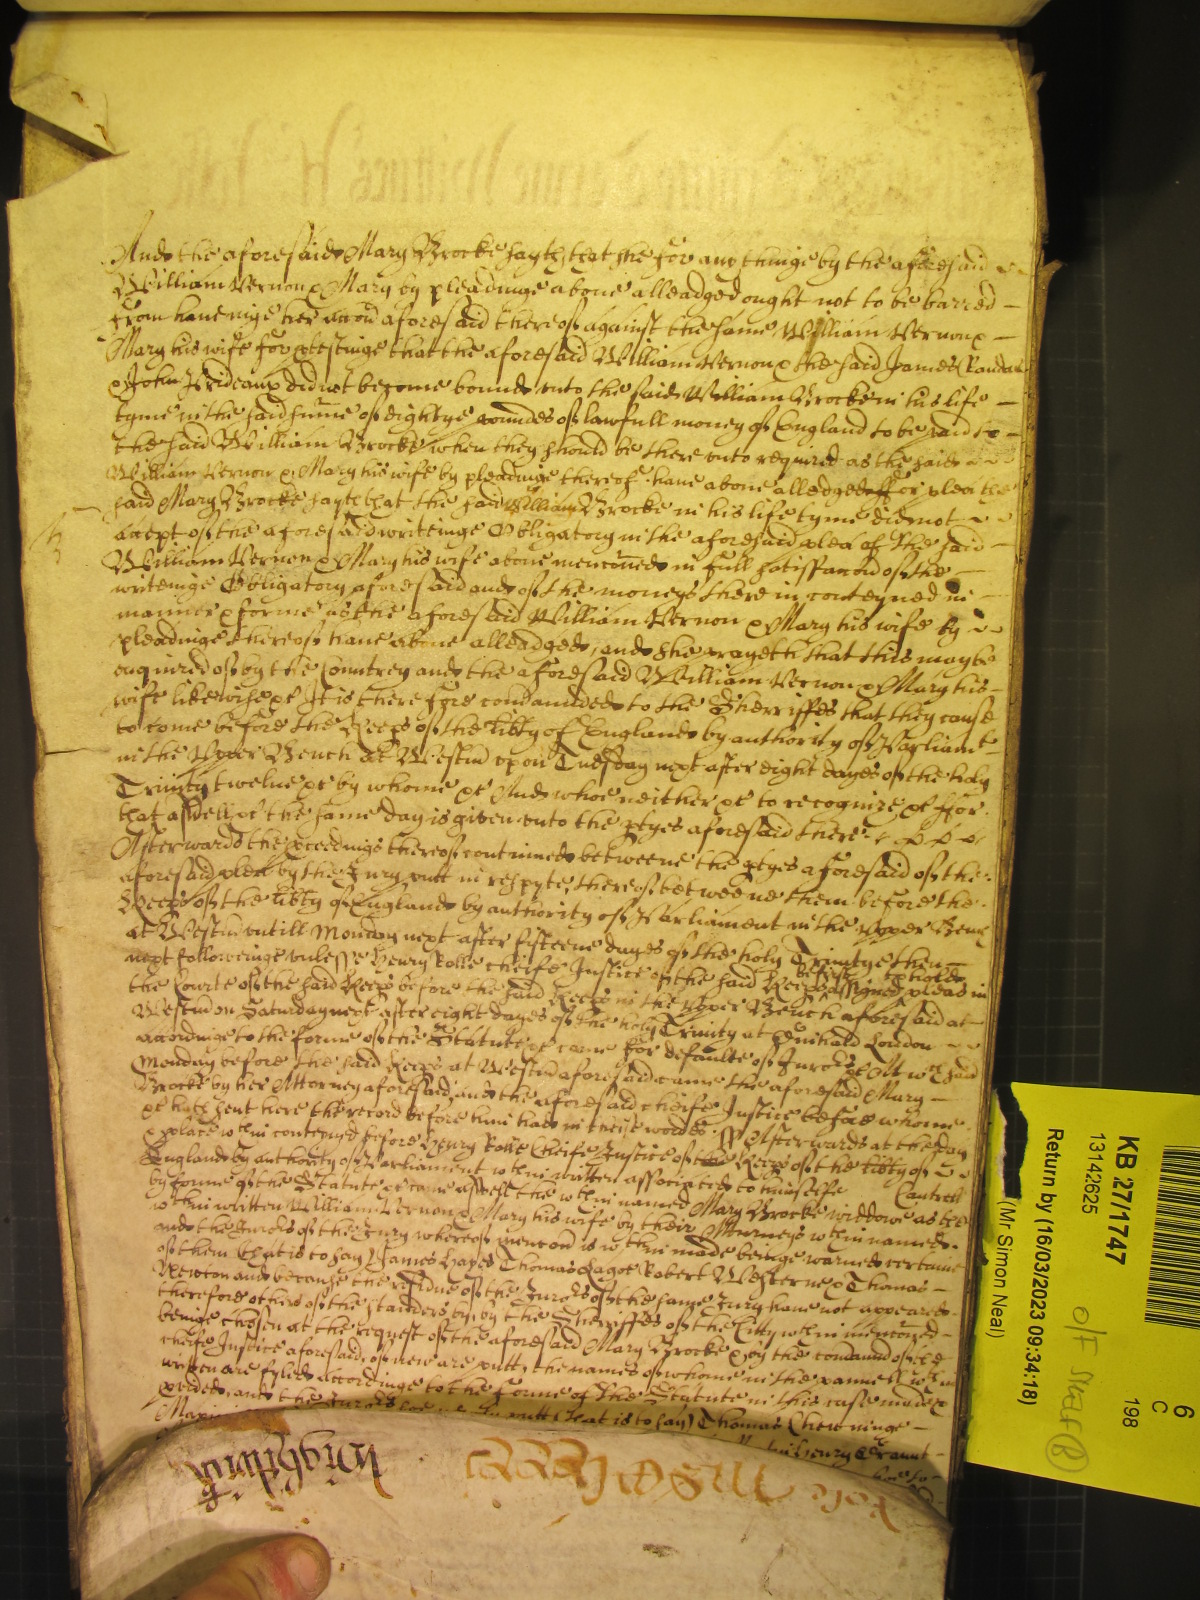 And the aforesaid Mary Brocke sayth that she for any thinge by the aforesaid
William Vernon & Mary by pleadinge above alleadged ought not to be barred
from haveinge her accon aforesaid thereof against the same William Vernon &
Mary his wife for ptestinge that the aforesaid William Vernon & the said James Randall
& John Prideaux did not become bound unto the said William Brocke in his life
tyme in the said summe of eightye poundes of lawfull money of England to be paid to
the said William Brocke when they should be there unto required as the said
William Vernon & Mary his wife by pleadinge thereof have above alleadged for plea the
said Mary Brocke sayth that the said William Brocke in his life tyme did not
accept of the aforesaid writeinge Obligatory in the aforesaid plea of the said
William Vernon & Mary his wife above menconed in full satisfaccon of the
writeinge Obligatory aforesaid and of the moneys there in conteyned in
manner & forme as the aforesaid William Vernon & Mary his wife by
pleadinge thereof have above alleadged, and she prayeth that this maybe
enquired of by the Countrey and the aforesaid William Vernon & Mary his
wife likewise &c It is therefore comaunded to the Sherriffes that they cause
to come before the Keeps of the libty of England by authority of Parliamt
in the Upper Bench at Westm upon Tuesday next after eight dayes of the holy
Trinity twelve &c by whome &c And whoe neither &c to recognize &c ffor
that aswell &c the same day is given unto the ptyes aforesaid there &c
Afterwards the pceedings thereof continued betweene the ptyes aforesaid of the
aforesaid plea by the Jury putt in respyte thereof betweene them before the
Keeps of the libty of England by authority of Parliament in the Upper Bench
at Westm untill Monday next after fifteene dayes of the holy Trinitye then
next followeinge unlesse Henry Rolle cheife Justice of the said Keeps assigned pleas in
before to holde
the Courte of the said Keeps before the said Keeps in the Upper Bench aforesaid at
Westm on Saturday next after eight dayes of the holy Trinity at Guihald London
accordinge to the forme of the Statute &c came for defaulte of Jurors &c At wch said
Monday before the said Keeps at Westm aforesaid came the aforesaid Mary
Brocke by her Attorney aforesaid, and the aforesaid cheife Justice before whome
&c hath sent here the record before him had in theise wordes: ss Afterwards at the day
& place wthin conteyned before Henry Rolle Cheife Justice of the Keeps of the libty of
England by authority of Parliament wthin written associated to himselfe Cantrell
by forme of the Statute &c came aswell the wthin named Mary Brocke widdowe as the
wthin written William Vernon & Mary his wife by their Attorneys wthin named
and the Jurors of the Jury whereof mencon is wthin made beinge warned certaine
of them that is to say James Hayes Thomas Pagot Robert Westerne & Thomas
Newton and because the residue of the Jurors of the same Jury have not appeared
therefore others of the standers by, by the Sherriffes of the Citty wthin menconed
beinge chosen at the request of the aforesaid Mary Brocke & by the comaund of the
cheife Justice aforesaid, of new are putt, the names of whome in the pannell wthin
written are fyled accordinge to the forme of the Statute in this case made &
pvided, and the Jurors putt (that is to say) Thomas Chewninge
Henry
Wightwick
KB 27/1747
13142625
Return by (16/03/2023 09:34:18)
(Mr Simon Neal)
6
C
198